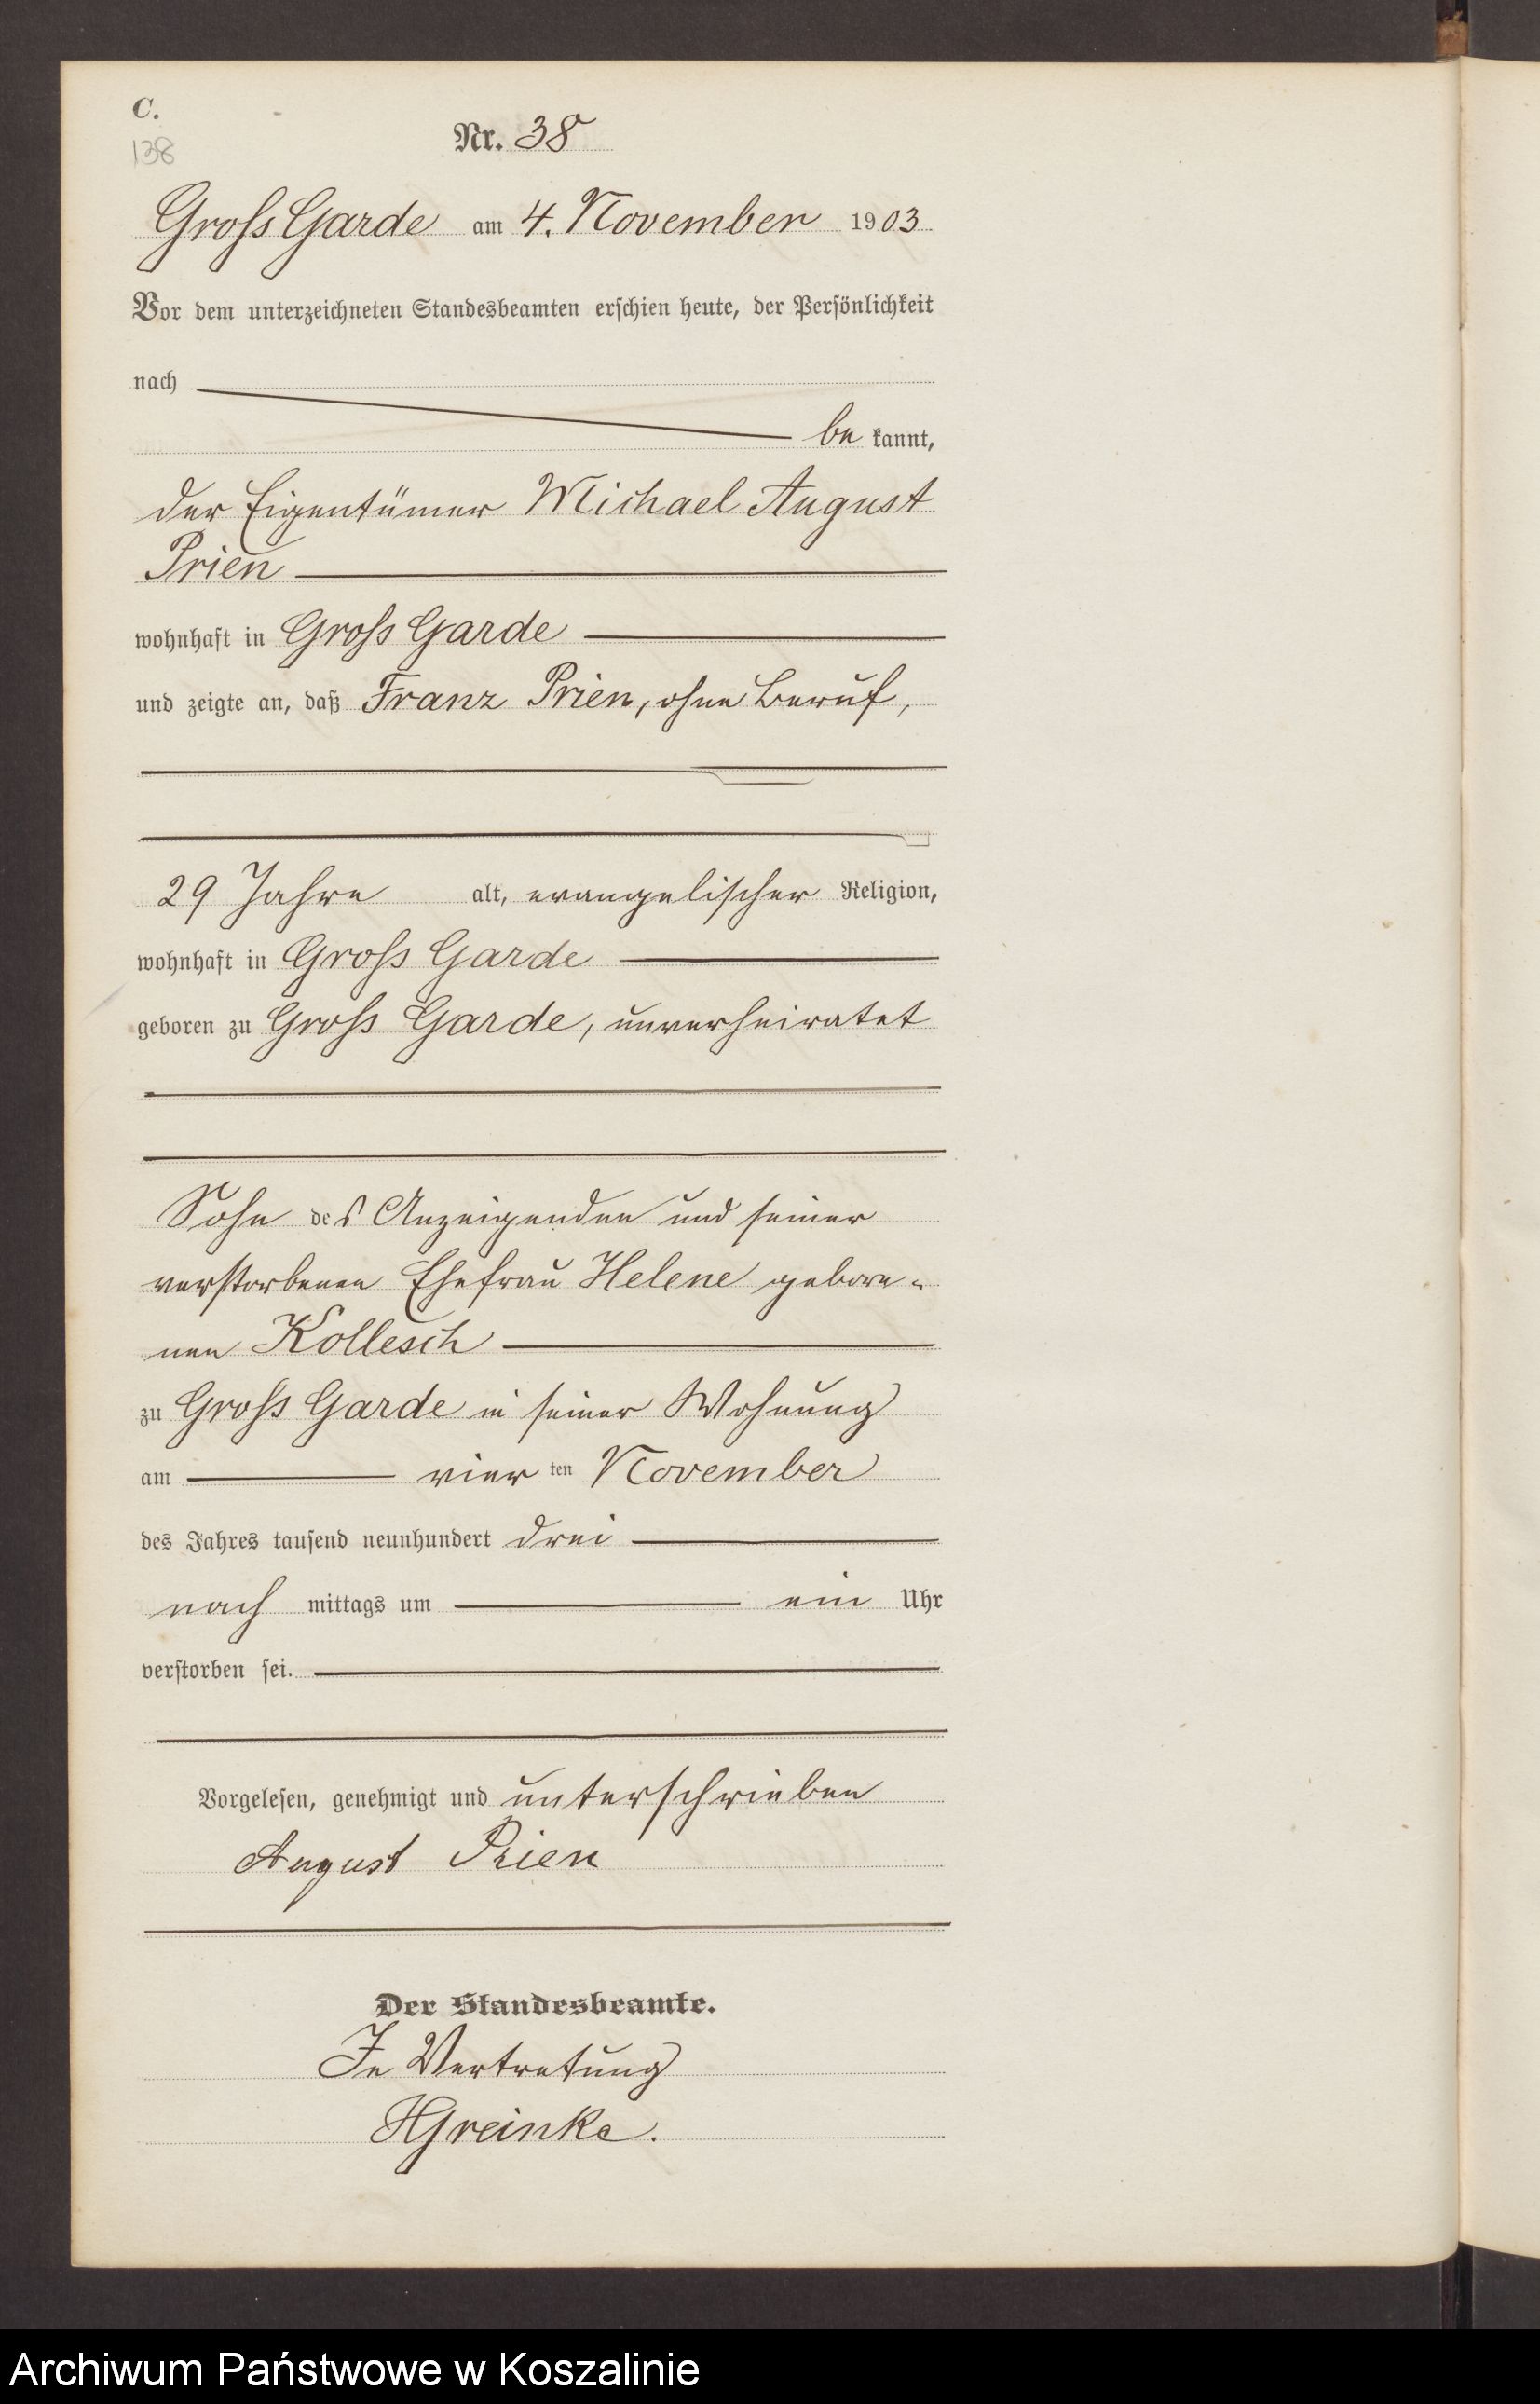 C.
138
Nr. 38
Gross Garde am 4. November 1903
Vor dem unterzeichneten Standesbeamten erschien heute, der Persönlichkeit
nach
be kannt,
der Eigentümer Michael August
Prien
wohnhaft in Gross Garde
und zeigte an, daß Franz Prien, ohne Beruf,
29 Jahre alt, evangelischer Religion,
wohnhaft in Gross Garde
geboren zu Gross Garde, unverheiratet
Sohn des Anzeigenden und seiner
verstorbenen Ehefrau Helene gebore-
nen Kollesch
zu Gross Garde in seiner Wohnung
am vier ten November
des Jahres tausend neunhundert drei
nach mittags um ein Uhr
verstorben sei.
Vorgelesen, genehmigt und unterschrieben
August Prien
Der Standesbeamte.
In Vertretung
HGreinke.
Archiwum Państwowe w Koszalinie